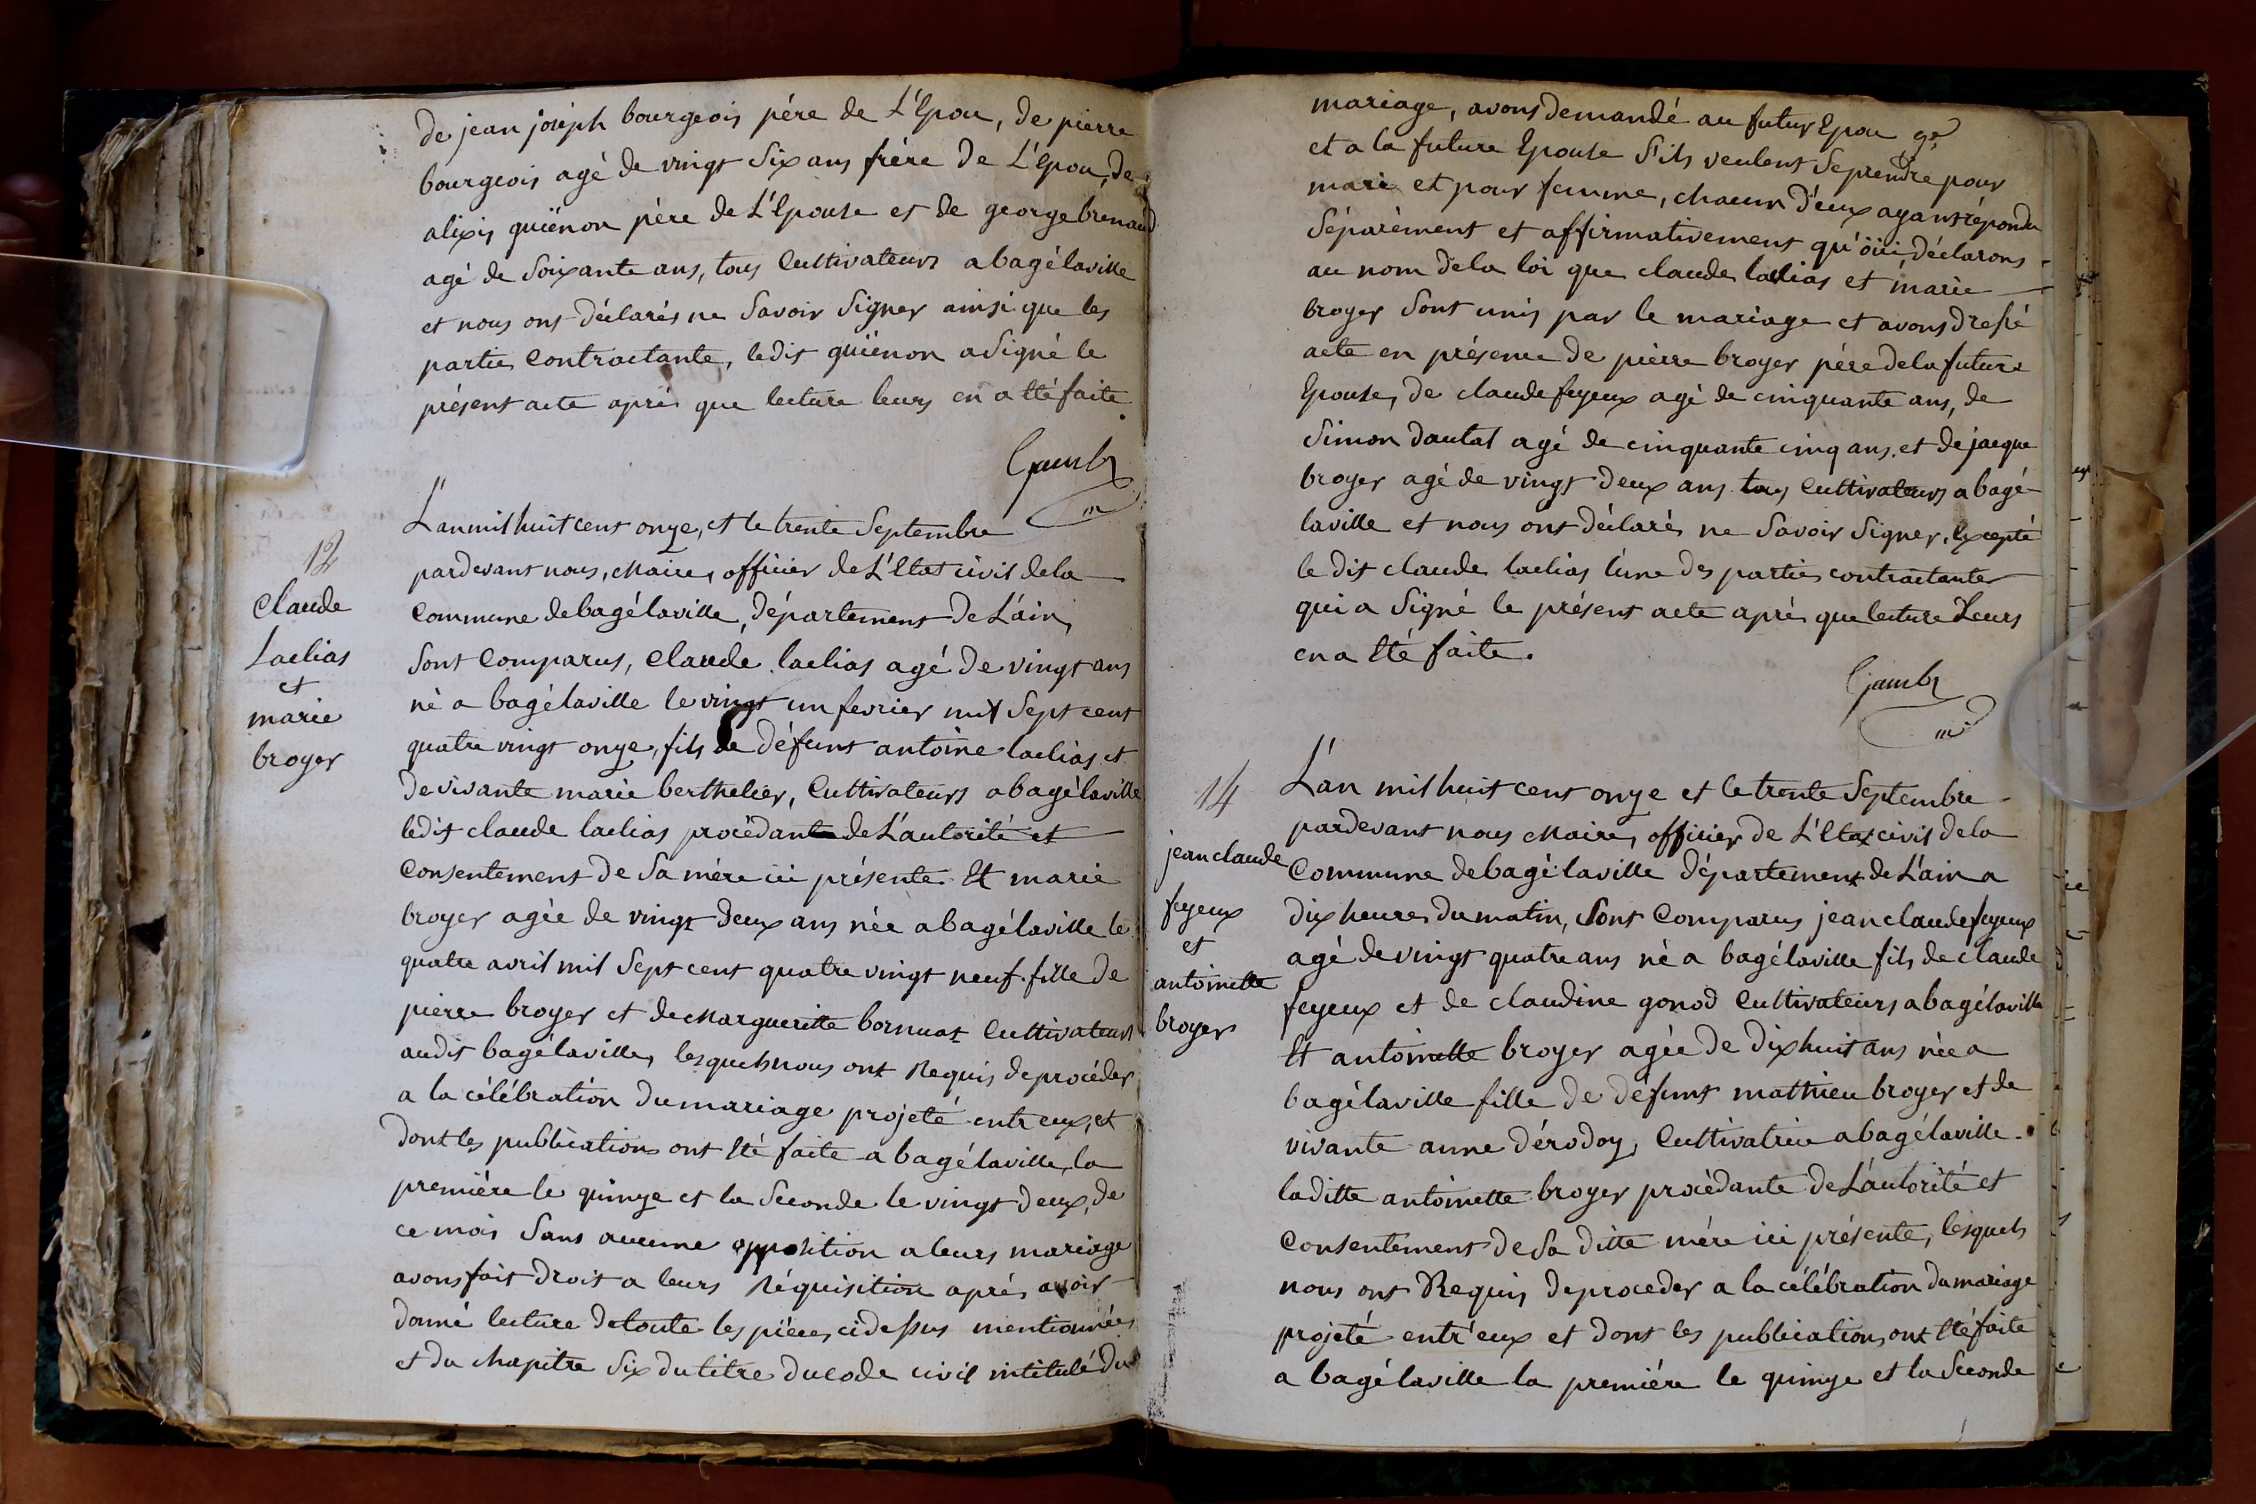 de jean joséph bourgeois pére de L'Epou, de pierre
bourgeois agé de vingt Six ans frére de L'Epou, de
alixis guiénon pére de L'Epouse et de george brenaud
agé de Soixante ans, tous Cultivateurs a bagélaville
et nous ont déclarés ne Savoir Signer ainsi que les
partie Contractante, ledit guiénon a Signé le
présent acte aprés que lecture leurs en a Eté faite.
L'an mil huit cent onze, et le trente Septembre
pardevant nous, Maire, officier de L'Etat civil dela
Commune debagélaville, département de L'ain,
Sont Comparus, Claude laclias agé de vingt ans
né a bagélaville le vingt un fevrier mil Sept cent
quatre vingt onze, fils de défunt antoine laclias et
de vivante marie berthelier, Cultivateurs a bagélaville
ledit claude laclias procédant de L'autorité et
Consentement de Sa mére ici présente. Et marie
broyer agée de vingt deux ans née a bagélaville le
quatre avril mil Sept cent quatre vingt neuf fille de
pierre broyer et de Marguerite bornuat Cultivateurs
audit bagélaville, lesquels nous ont Requis de procéder
a la célébration du mariage projeté entr'eux, et
dont les publications ont Eté faite a bagélaville, la
premiére le quinze et la Seconde le vingt deux, de
ce mois Sans aucune opposition a leurs mariage
avons fait droit a leurs Réquisition aprés avoir
donné lecture de toute les piéces cidessus mentionnées
et du chapitre Six du titre du code civil intitulé du
12
Claude
Laclias
et
marie
broyer
mariage, avons demandé au futur Epou
et a la future Epouse S'ils veulent Se prendre pour
mari et pour femme, chacun d'eux ayant répondu
Séparément et affirmativement qu'öüi, déclarons
au nom dela loi que claude laclias et marie
broyer Sont unis par le mariage et avons dressé
acte en présence de pierre broyer pére dela future
Epouse, de claude feyeux agé de cinquante ans, de
Simon dautal agé de cinquante cinq ans et de jacque
broyer agé de vingt deux ans tous Cultivateurs a bagé
laville et nous ont déclarés ne Savoir Signer, Excepté
le dit claude laclias l'une des parties contractantes
qui a Signé le présent acte aprés que lecture Leurs
en a Eté faite.
14
jean claude
feyeux
et
antoinette
broyer
L'an mil huit cent onze et le trente Septembre
pardevant nous Maire, officier de L'Etat civil dela
Commune debagélaville département de L'ain a
dix heures du matin, Sont Comparus jean claude feyeux
agé de vingt quatre ans né a bagélaville fils de claude
feyeux et de claudine gonod Cultivateurs a bagélaville
Et antoinette broyer agée de dix huit ans née a
bagélaville fille de défunt mathieu broyer et de
vivante anne dérodoy, Cultivatrice a bagélaville.
laditte antoinette broyer procédante de L'autorité et
Consentement de Sa ditte mére ici présente, lesquels
nous ont Requis de proceder a la célébration du mariage
projeté entr'eux et dont les publications ont Eté faite
a bagélaville la premiére le quinze et la Seconde